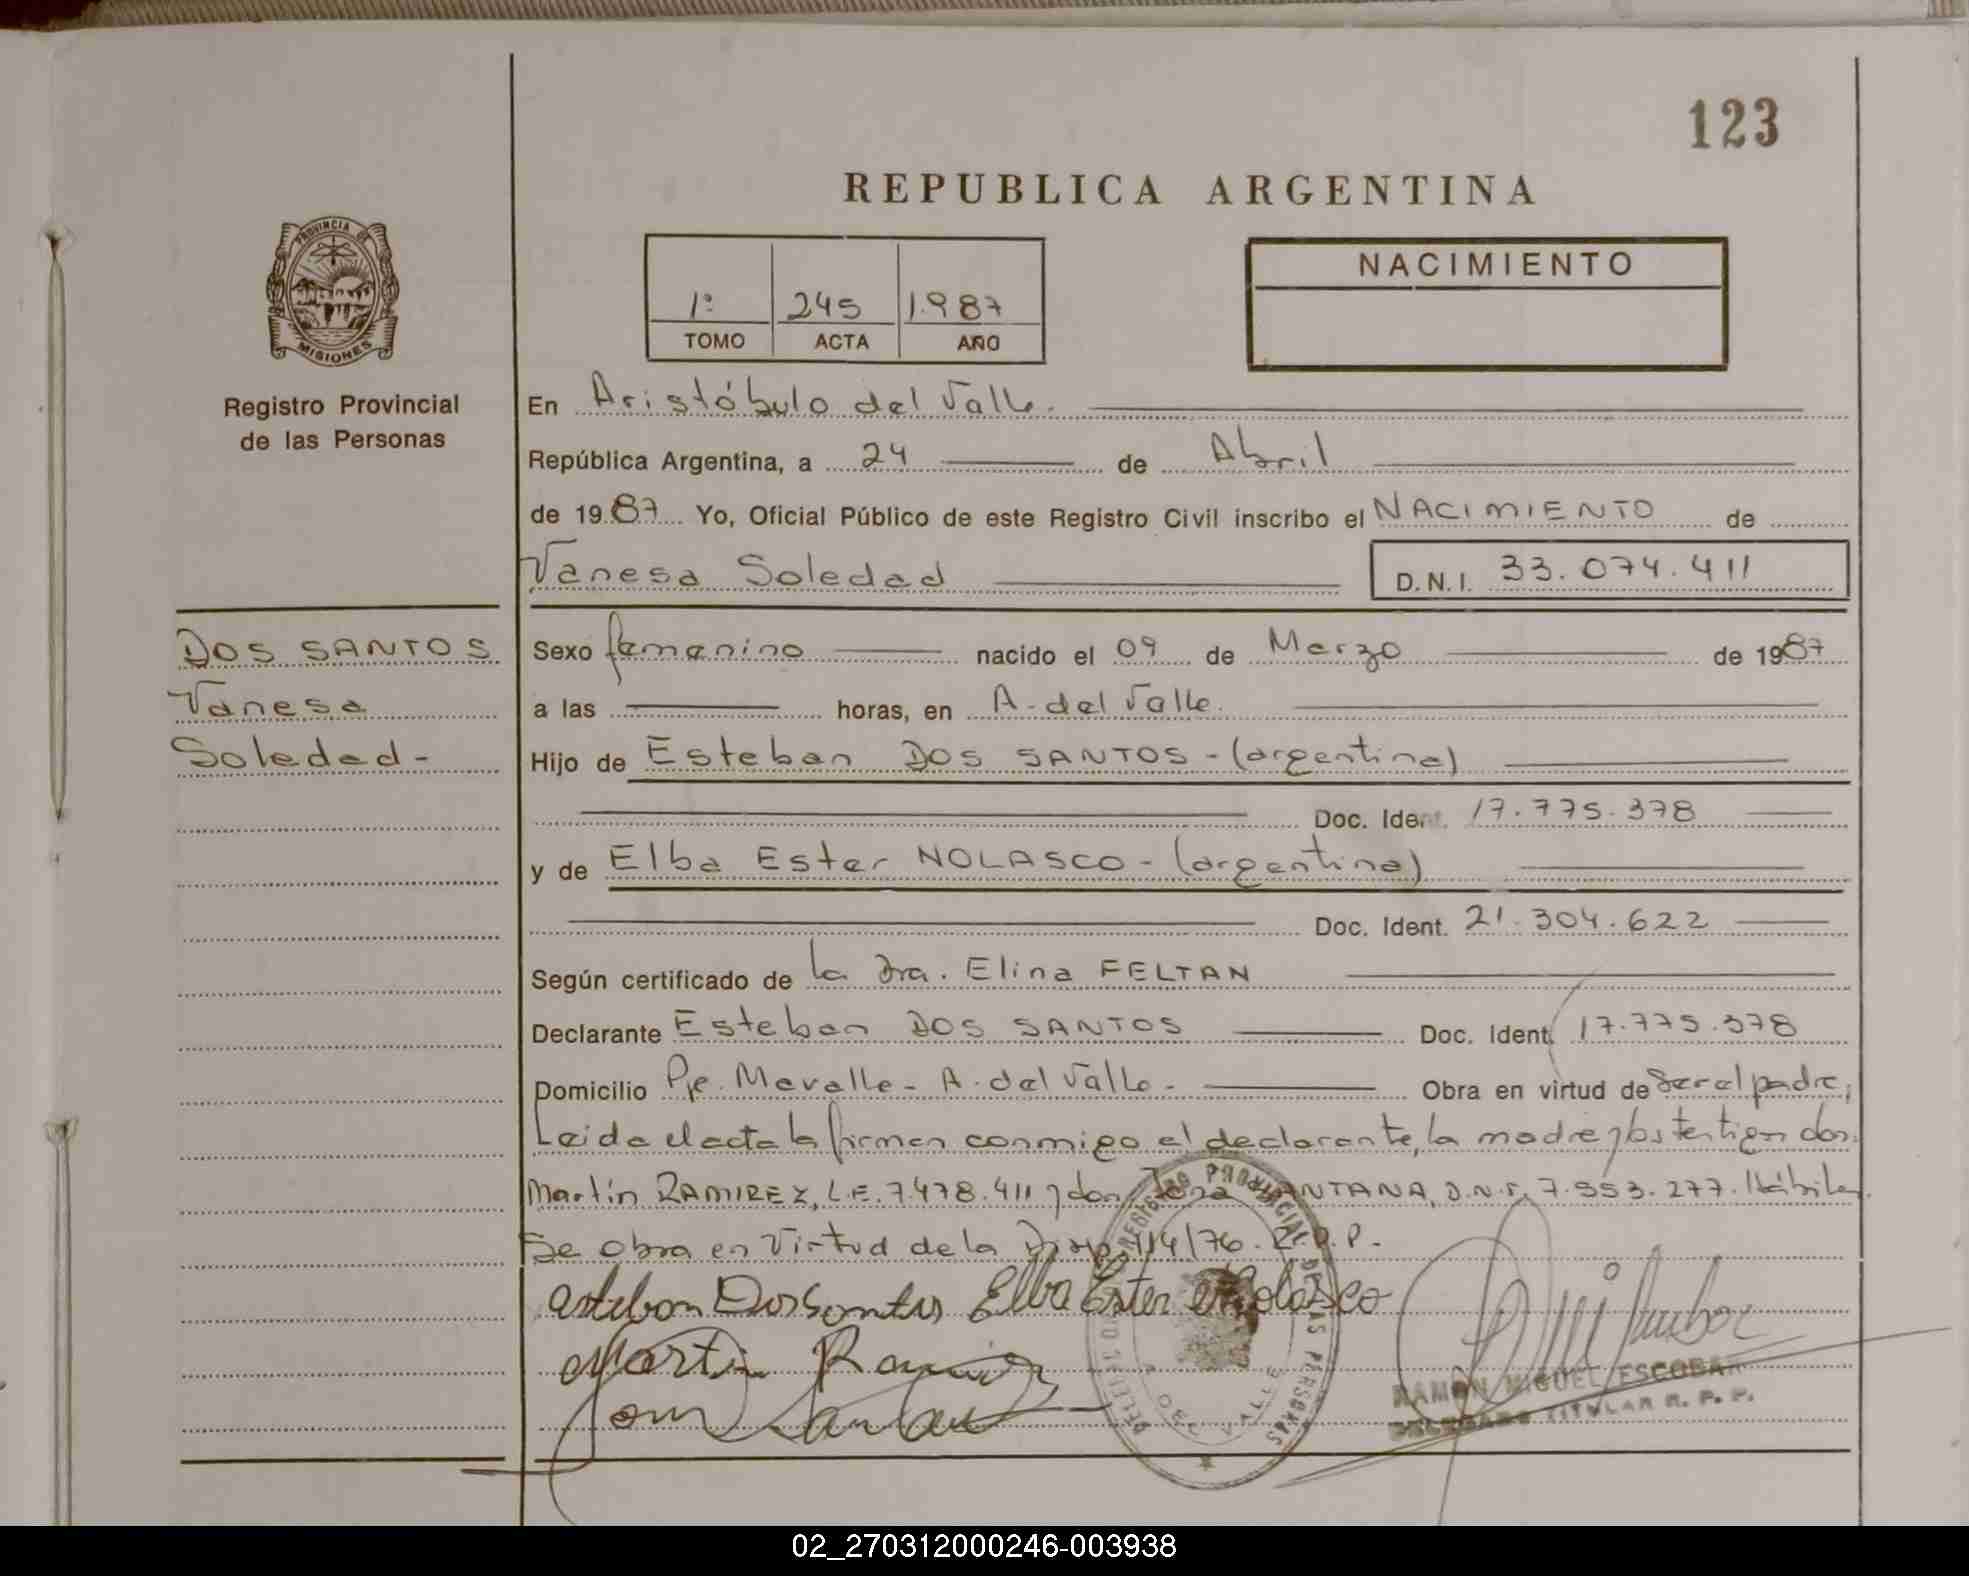 123
REPUBLICA ARGENTINA
PROVINCIA DE
MISIONES
Registro Provincial
de las Personas
1º 245 1.987
TOMO ACTA AÑO
NACIMIENTO
En Aristóbulo del Valle.
República Argentina, a 24 de Abril
de 1987 Yo, Oficial Público de este Registro Civil inscribo el NACIMIENTO de
Vanesa Soledad D.N.I. 33.074.411
DOS SANTOS
Vanesa
Soledad-
Sexo femenino nacido el 09 de Marzo de 1987
a las horas, en A. del Valle.
Hijo de Esteban DOS SANTOS - (argentina)
Doc. Ident. 17.775.378
y de Elba Ester NOLASCO - (argentina)
Doc. Ident. 21.304.622
Según certificado de la Dra. Elina FELTAN
Declarante Esteban DOS SANTOS Doc. Ident. 17.775.378
Domicilio Pje. Mevalle - A. del Valle - Obra en virtud de Ser el padre;
Leida el acta la firman conmigo el declarante, la madre y los testigos don:
Martín RAMIREZ, L.E. 7.478.411 y don SANTANA, D.N.I. 7.553.277. Hábiles
Se obra en Virtud de la Disp. 414/76. R.P.P.
esteban Dos Santos Elba Ester Nolasco
Martin Ramirez
REGISTRO PROVINCIAL DE LAS PERSONAS
A. DEL VALLE
RAMON MIGUEL ESCOBAR
DELEGADO TITULAR R. P. P.
02_270312000246-003938